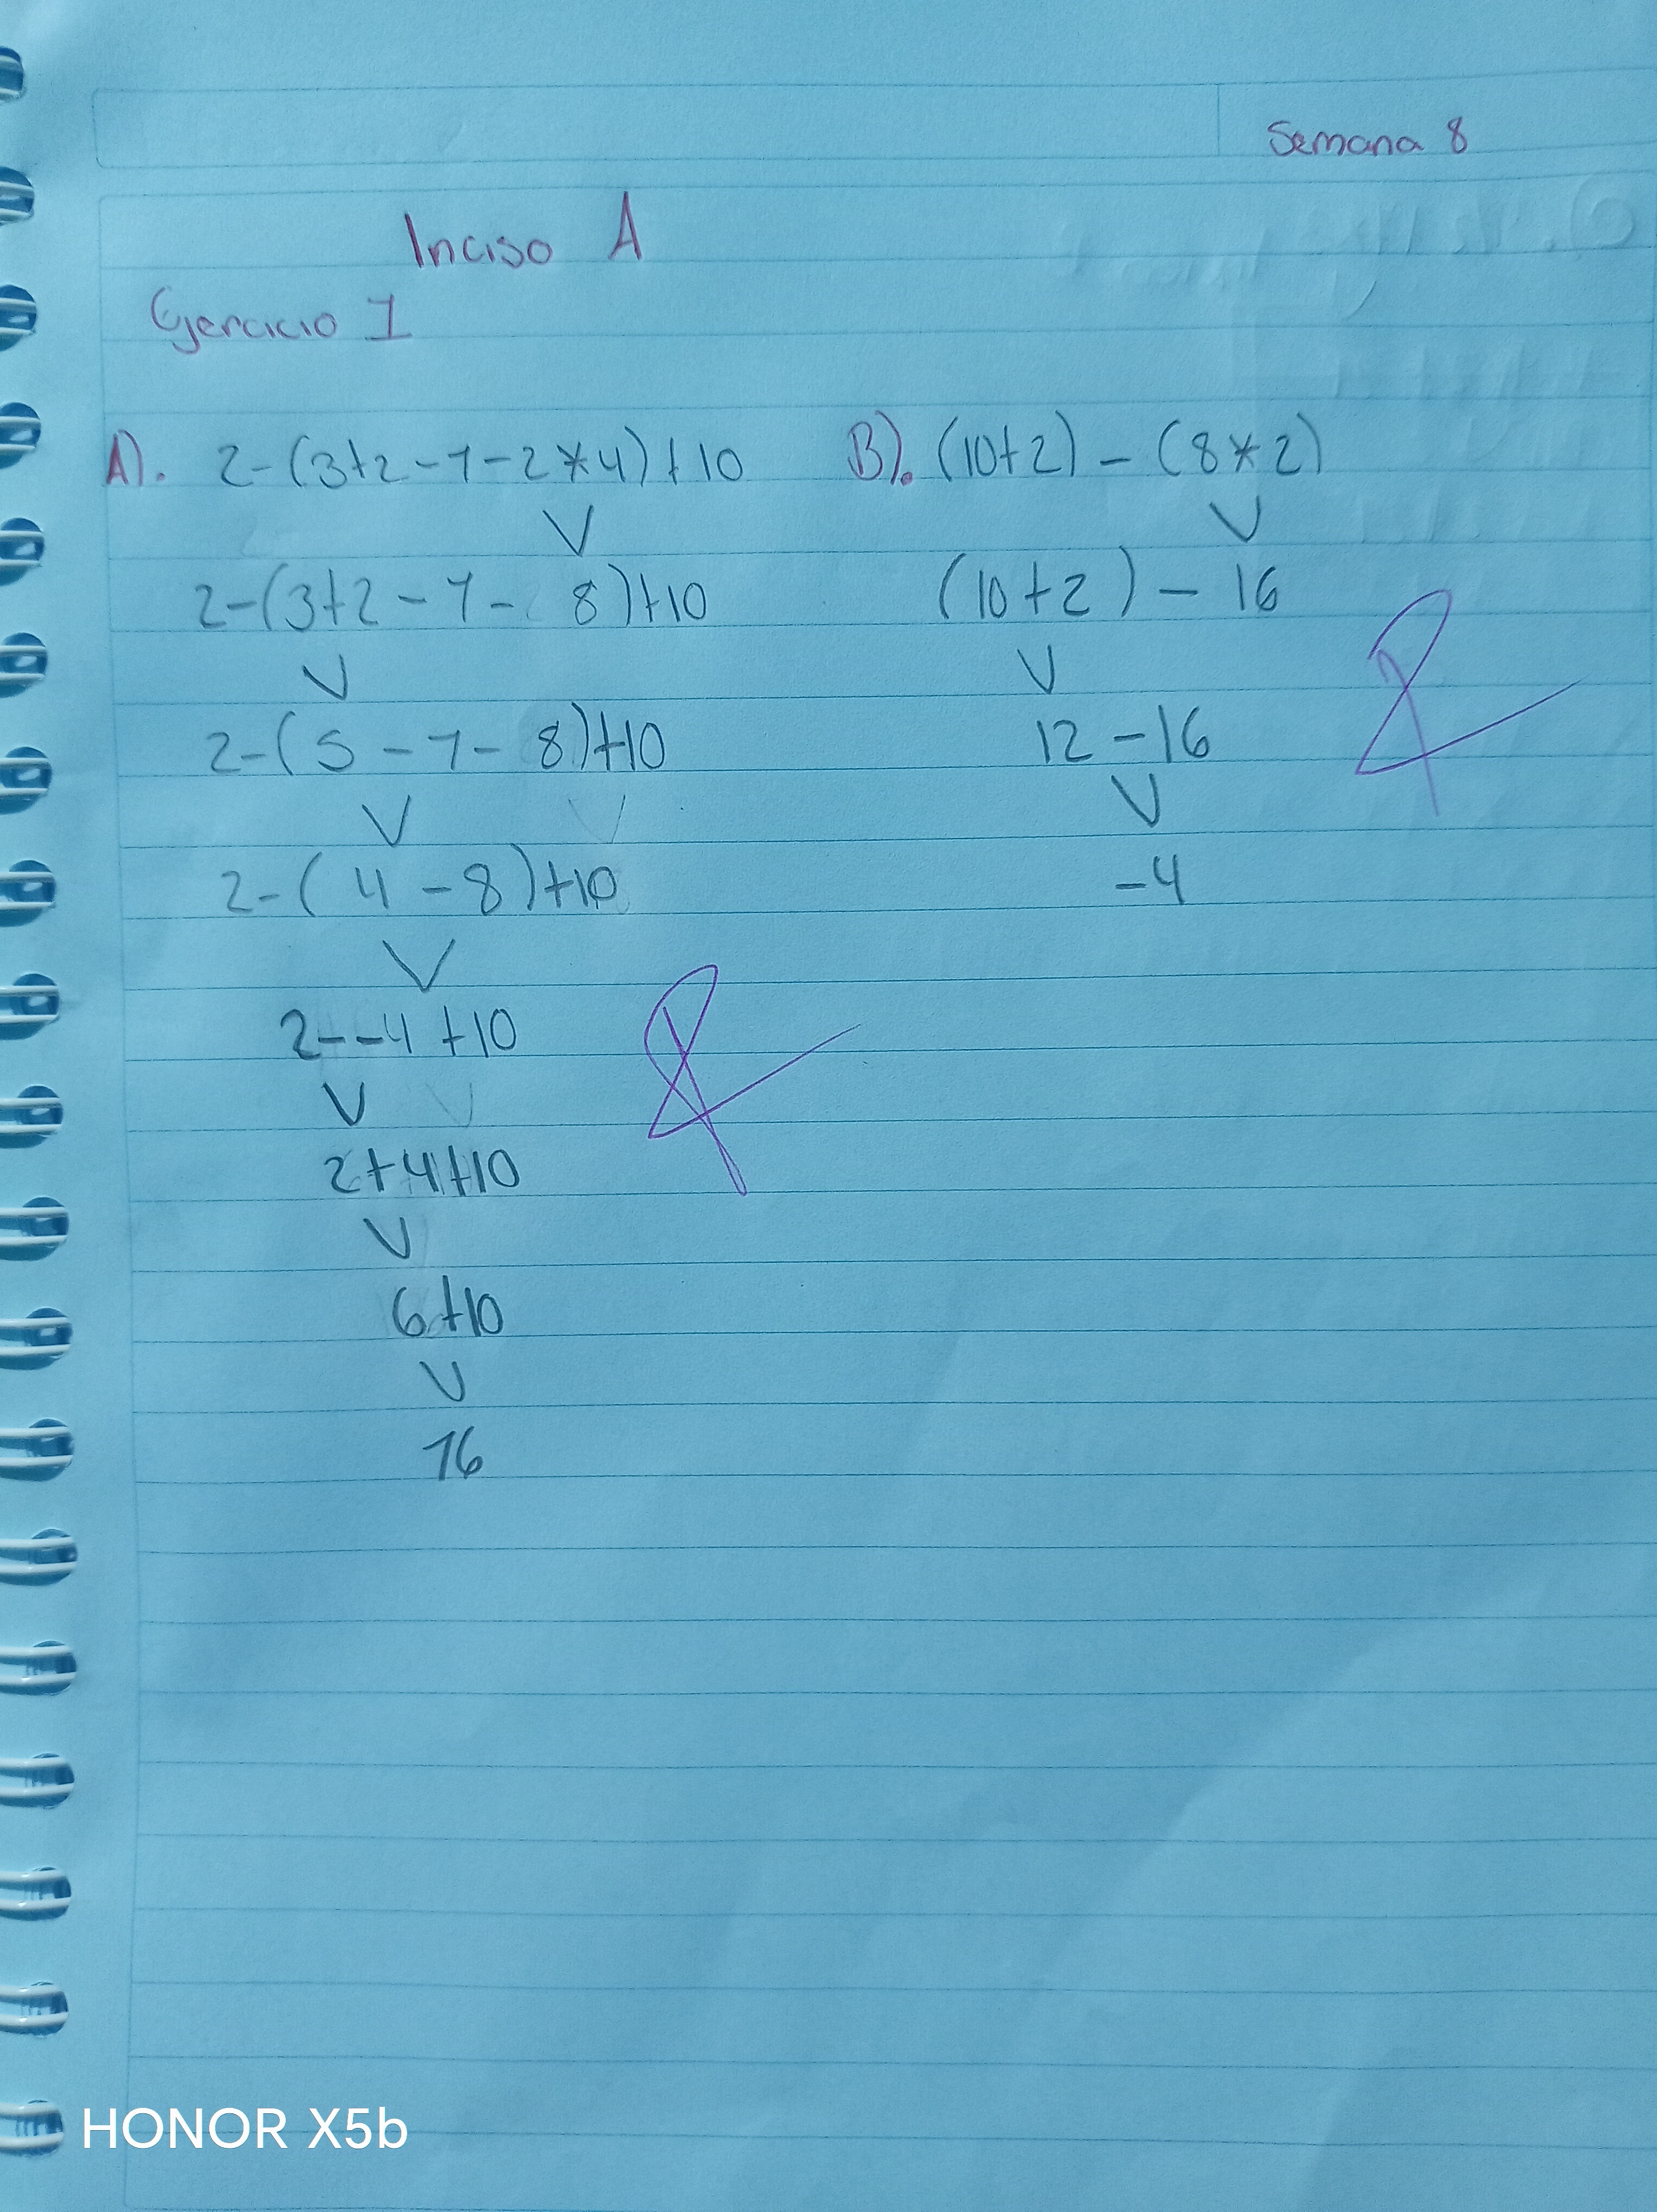 Semana 8
Inciso A
Ejercicio 1
A). 2-(3+2-1-2*4)+10
2-(3+2-1-8)+10
2-(5-1-8)+10
2-(4-8)+10
2--4+10
2+4+10
6+10
16
B). (10+2)-(8*2)
(10+2)-16
12-16
-4
HONOR X5b